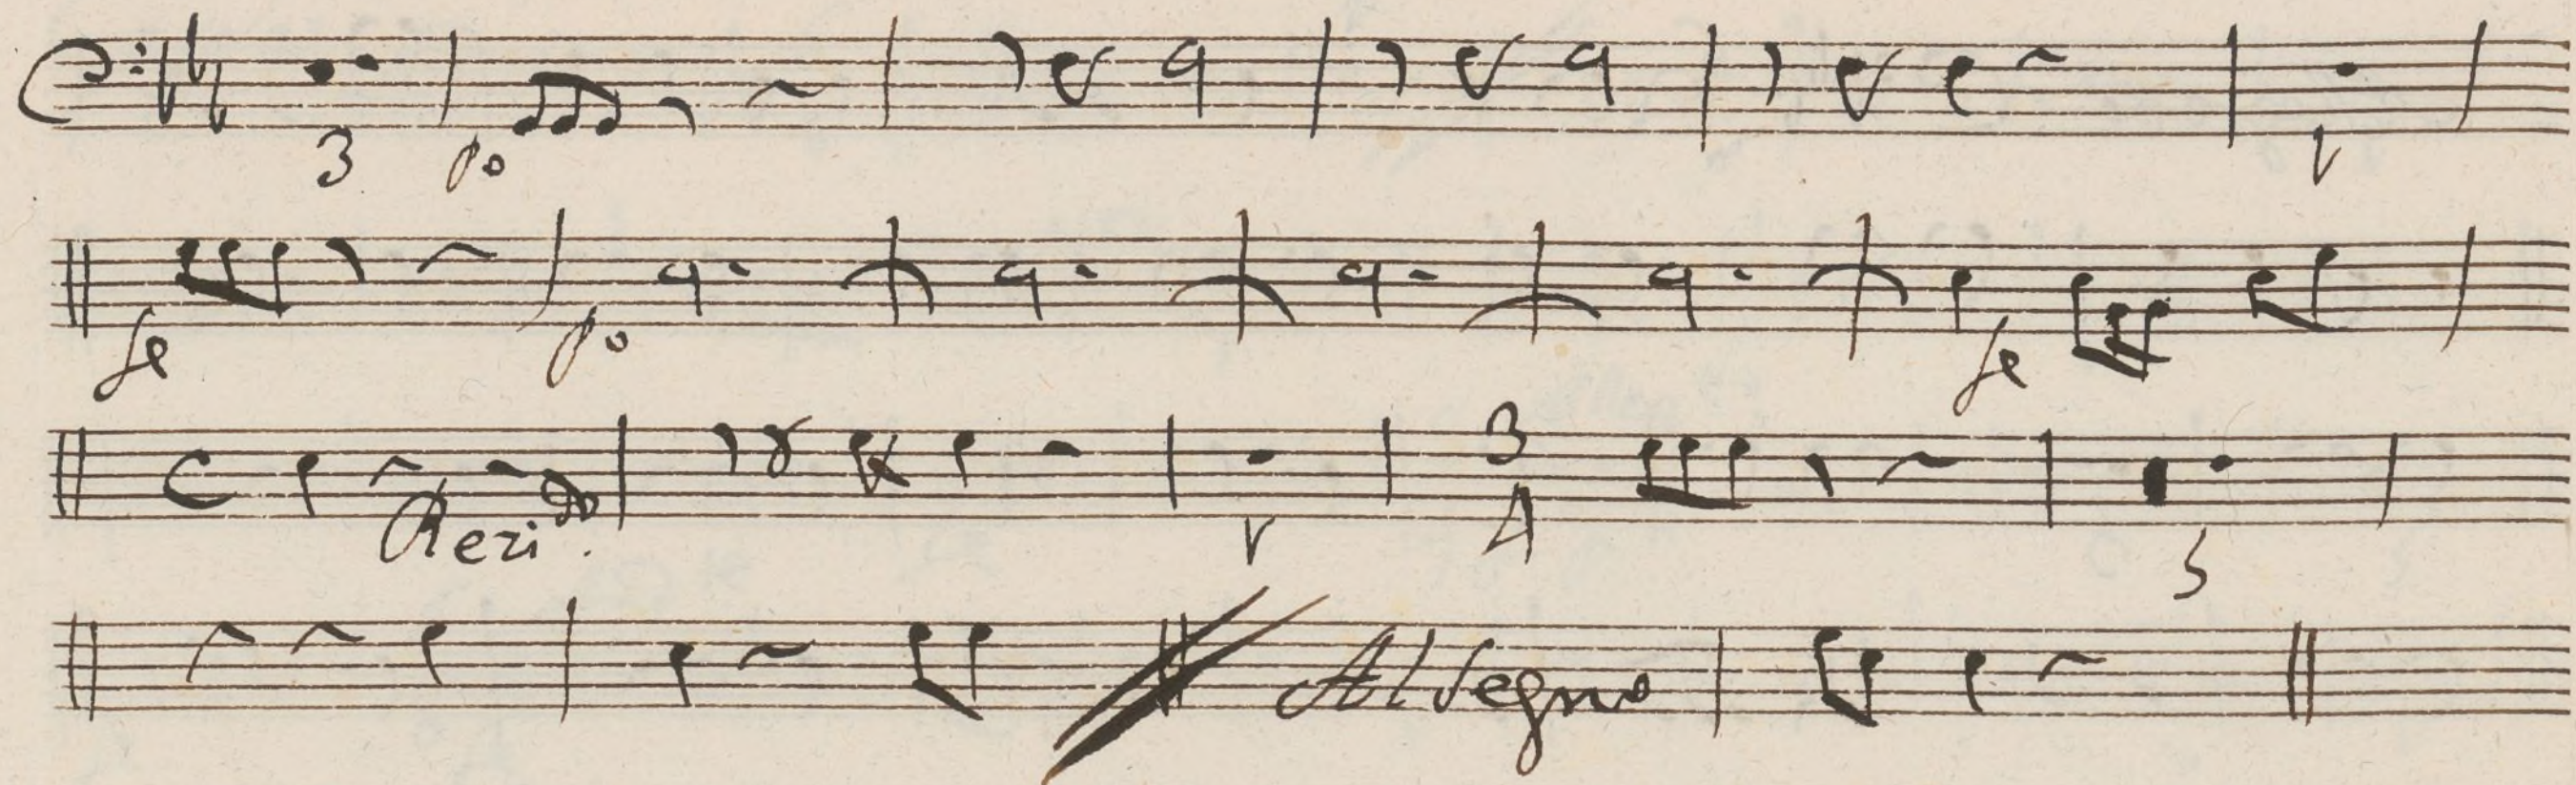 3 po
fe po fe
C Rezi. 3 4
Al Segno